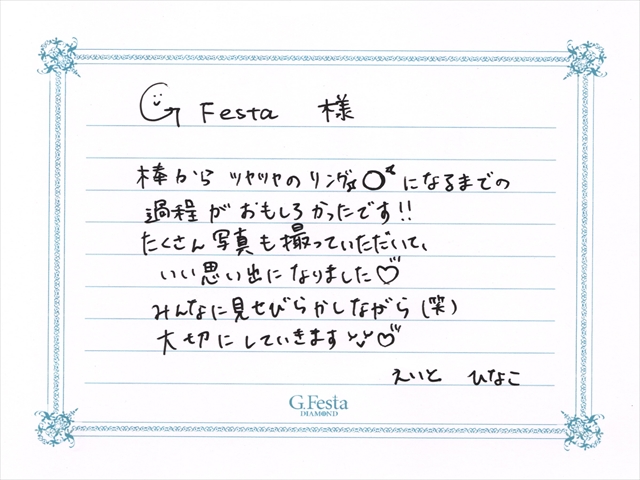 G Festa 様
棒から ツヤツヤの リングになるまでの
過程が おもしろかったです!!
たくさん写真も撮っていただいて、
いい思い出になりました♡
みんなに見せびらかしながら(笑)
大切にしていきます♡
えいと ひなこ
G.Festa
DIAMOND